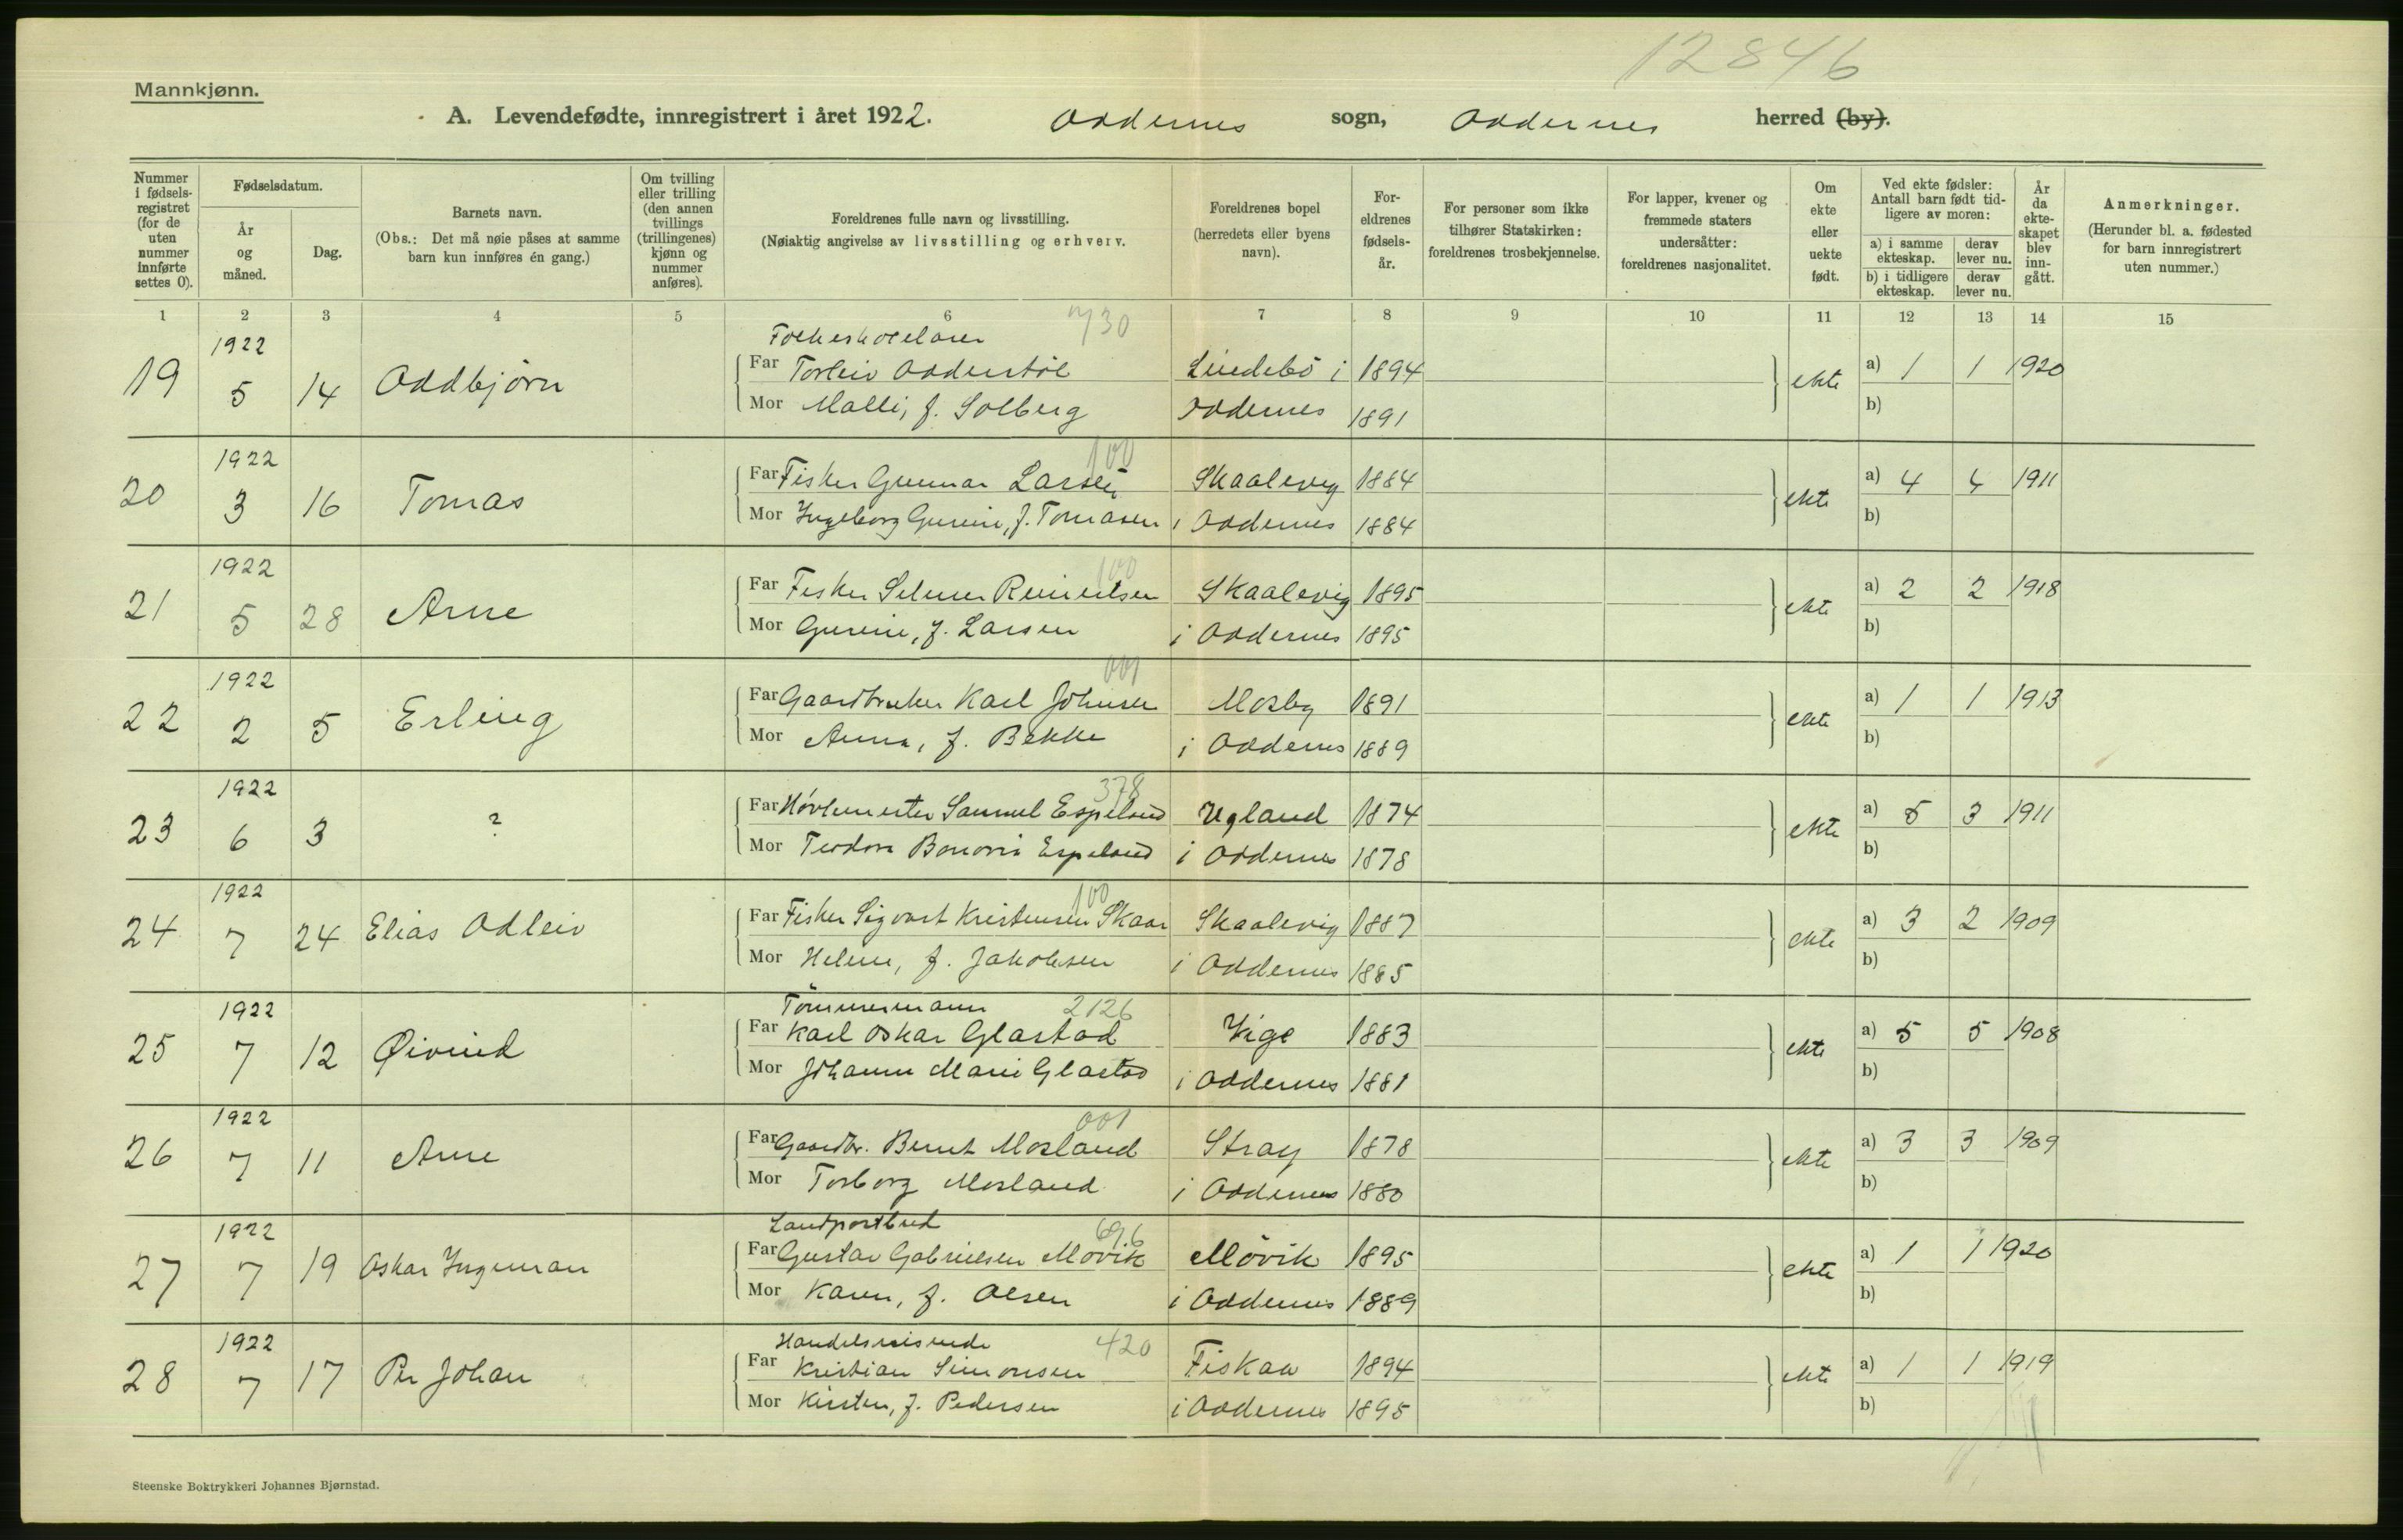 12846
Mannkjønn.
A. Levendefødte, innregistrert i året 1922. Oddernes sogn, Oddernes herred (by).
Nummer i fødselsregistret (for de uten nummer innførte settes 0).
Fødselsdatum.
År og måned.
Dag.
Barnets navn.
(Obs.: Det må nøie påses at samme barn kun innføres én gang.)
Om tvilling eller trilling (den annen tvillings (trillingenes) kjønn og nummer anføres).
Foreldrenes fulle navn og livsstilling.
(Nøiaktig angivelse av livsstilling og erhverv.
Foreldrenes bopel (herredets eller byens navn).
Foreldrenes fødselsår.
For personer som ikke tilhører Statskirken: foreldrenes trosbekjennelse.
For lapper, kvener og fremmede staters undersåtter: foreldrenes nasjonalitet.
Om ekte eller uekte født.
Ved ekte fødsler: Antall barn født tidligere av moren:
a) i samme ekteskap. derav lever nu.
b) i tidligere ekteskap. derav lever nu.
År da ekteskapet blev inngått.
Anmerkninger.
(Herunder bl. a. fødested for barn innregistrert uten nummer.)
1 2 3 4 5 6 7 8 9 10 11 12 13 14 15
1922 Folkeskolelærer 730
19 5 14 Oddbjørn Far Torleiv Odderstøl Lindebö i 1894 ekte a) 1 1 1920
Mor Malli, f. Solberg Oddernes 1891 b)
1922 100
20 3 16 Tomas Far Fisker Gunnar Larsen Skaalevig 1884 ekte a) 4 4 1911
Mor Ingeborg Gurine, f. Tomasen i Oddernes 1884 b)
1922 100
21 5 28 Arne Far Fisker Selmer Reinertsen Skaalevig 1895 ekte a) 2 2 1918
Mor Gurine, f. Larsen i Oddernes 1895 b)
1922 001
22 2 5 Erling Far Gaardbruker Karl Johnsen Mosby 1891 ekte a) 1 1 1913
Mor Anna, f. Bekke i Oddernes 1889 b)
1922 378
23 6 3 ? Far Hövlemester Samuel Espeland Ugland 1874 ekte a) 5 3 1911
Mor Teodora Espeland i Oddernes 1878 b)
1922 100
24 7 24 Elias Odleiv Far Fisker Sigvart Kristensen Skaar Skaalevig 1887 ekte a) 3 2 1909
Mor Helene, f. Jakobsen i Oddernes 1885 b)
1922 Tömmermann 2126
25 7 12 Øivind Far Karl Oskar Glastad Vige 1883 ekte a) 5 5 1908
Mor Johanne Marie Glastad i Oddernes 1881 b)
1922 001
26 7 11 Arne Far Gaardbr. Bernt Mosland Stray 1878 ekte a) 3 3 1909
Mor Torborg Mosland i Oddernes 1880 b)
1922 Landpostbud 696
27 7 19 Oskar Ingemar Far Gustav Gabrielsen Mövik Mövik 1895 ekte a) 1 1 1920
Mor Karen, f. Olsen i Oddernes 1889 b)
1922 Handelsreisende 420
28 7 17 Per Johan Far Kristian Simonsen Fiskaa 1894 ekte a) 1 1 1919
Mor Kirsten, f. Pedersen i Oddernes 1895 b)
Steenske Boktrykkeri Johannes Bjørnstad.